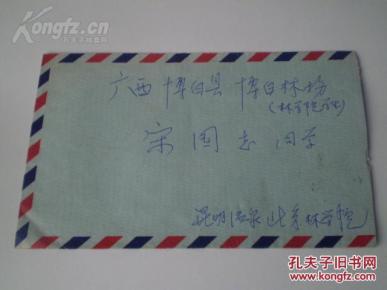 Kongfz.cn
孔夫子旧书网
广西 博白县 博白林场
(林学院
宋国志同学
昆明温泉北京林学院
孔夫子旧书网
KONGFZ.COM